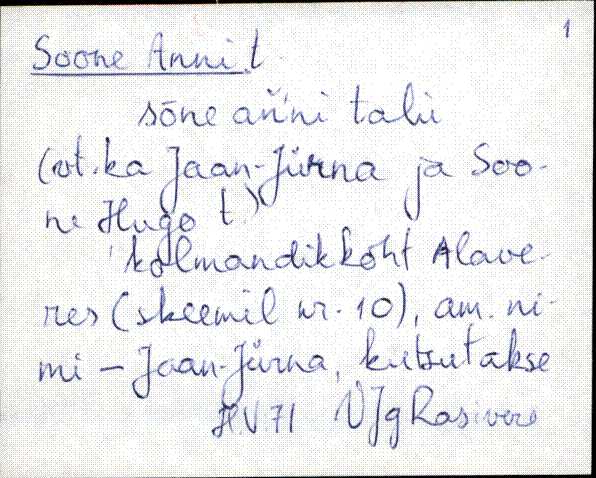 1
Soone Anni t.
sōne ań'ni talu
(vt. ka Jaan-Jürna ja Soo-
ne Hugo t.)
kolmandikkoht Alave-
res (skeemil nr. 10), am. ni-
mi – Jaan-Jürna, kutsutakse
HV 71 VJg Rasivere